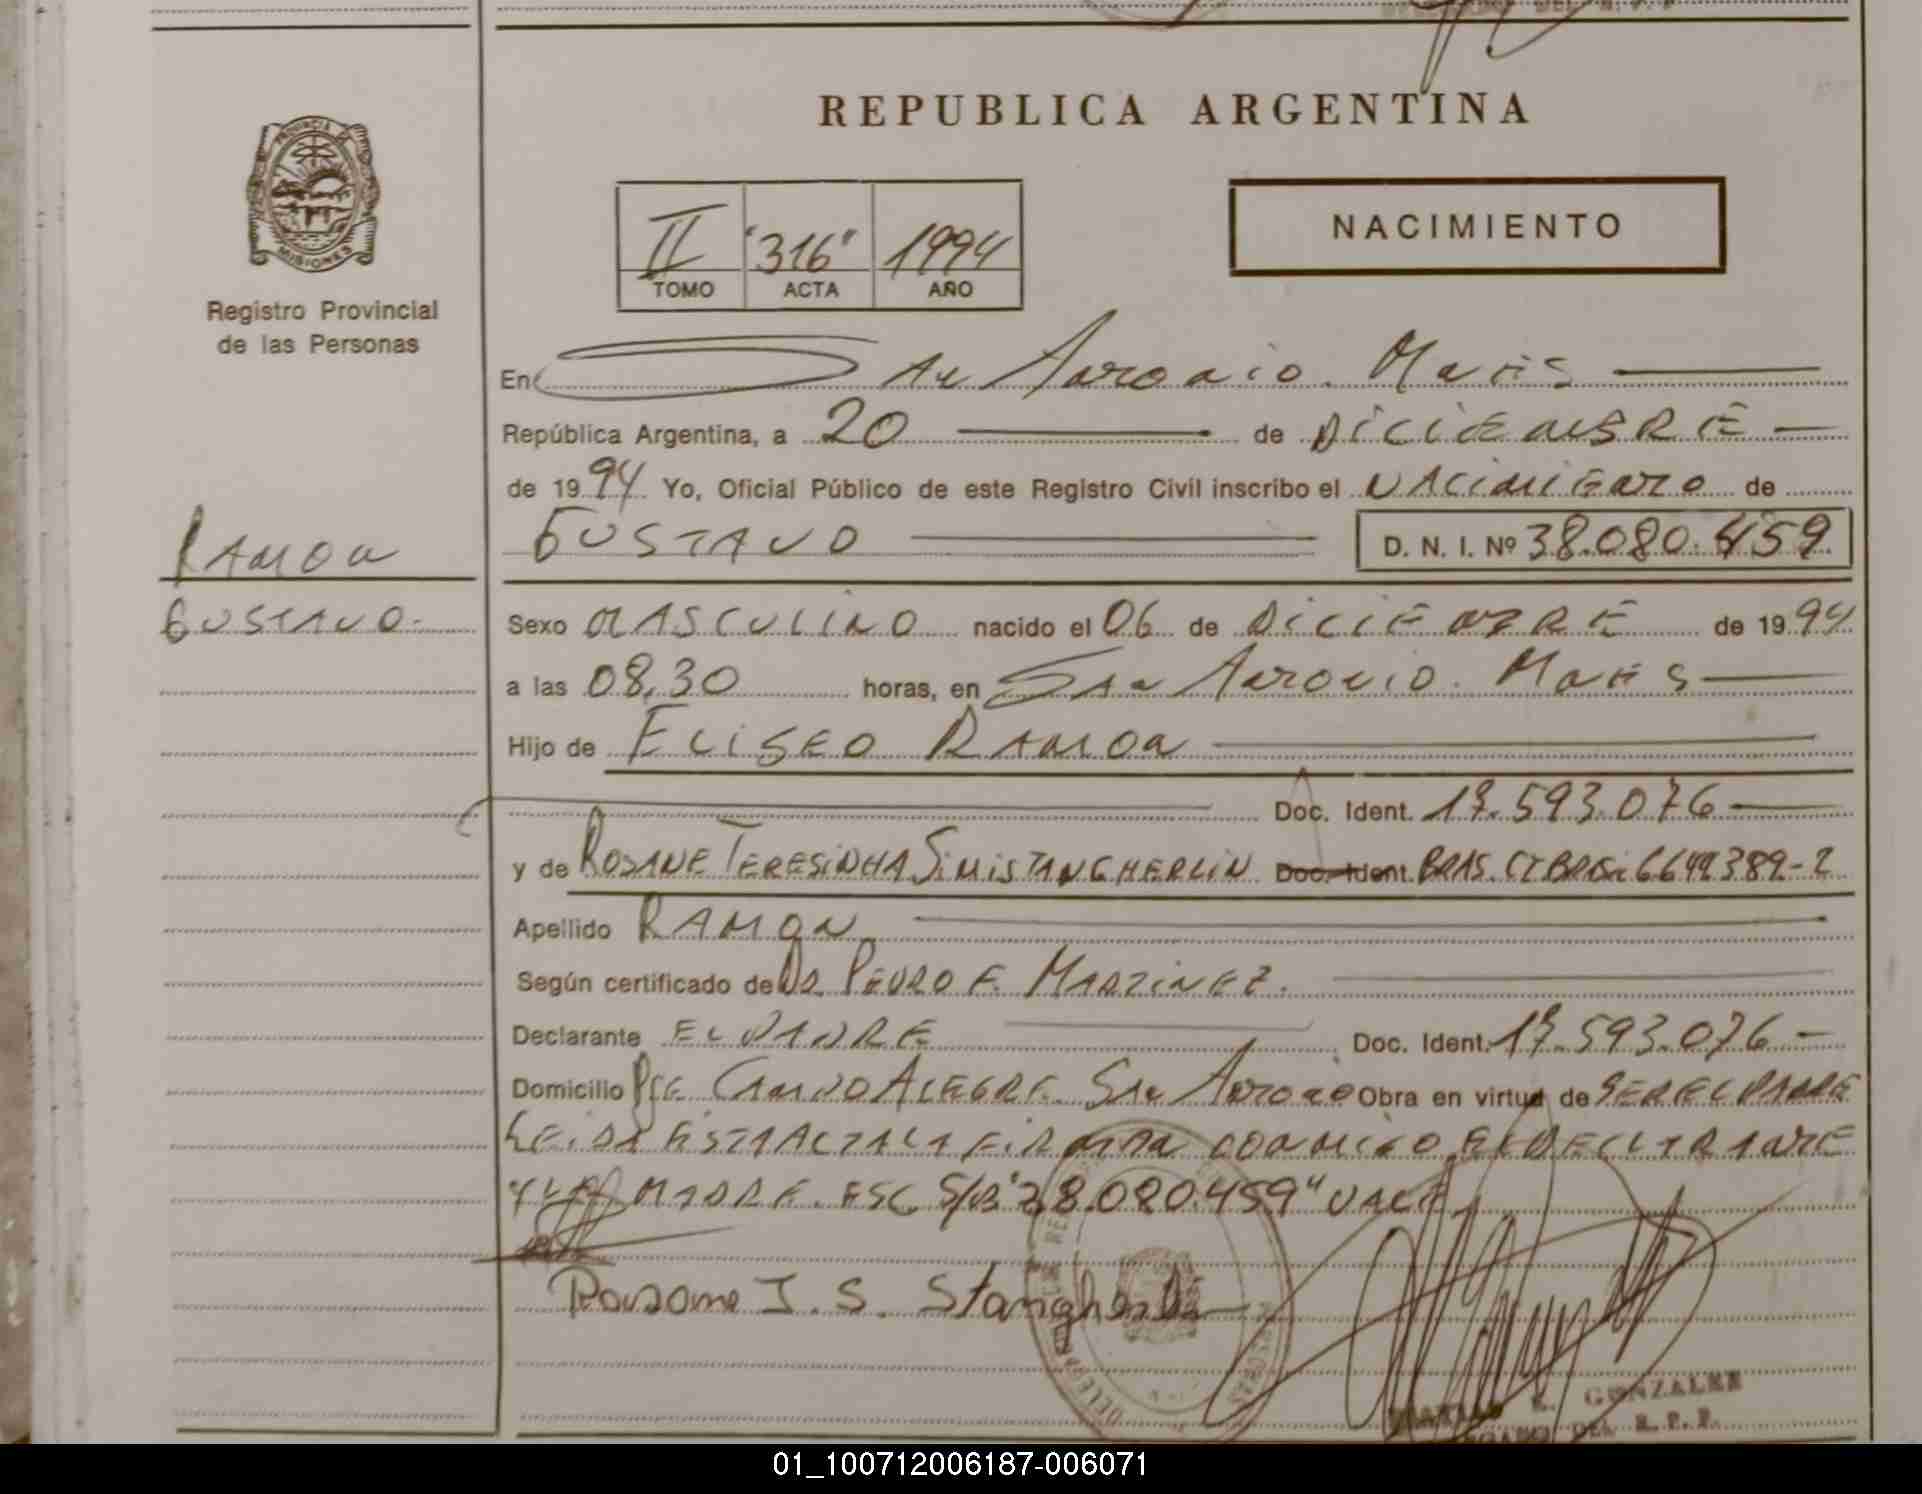 REPUBLICA ARGENTINA
PROVINCIA
MISIONES
Registro Provincial
de las Personas
II "316" 1994
TOMO ACTA AÑO
NACIMIENTO
En San Antonio. Mnes
República Argentina, a 20 de DICIEMBRE
de 1994 Yo, Oficial Público de este Registro Civil inscribo el NACIMIENTO de
RAMON
GUSTAVO D. N. I. Nº 38.080.459
GUSTAVO.
Sexo MASCULINO nacido el 06 de DICIEMBRE de 1994
a las 08,30 horas, en San Antonio. Mnes
Hijo de ELISEO RAMON
Doc. Ident. 17.593.076
y de ROSANE TERESINHA SIMI STANGHERLIN Doc. Ident. BRAS. CI BRAS: 6649389-2
Apellido RAMON
Según certificado de DR. PEDRO F. MARTINEZ.
Declarante EL PADRE Doc. Ident. 17.593.076
Domicilio Pje CAMPO ALEGRE. San Antonio Obra en virtud de SER EL PADRE
LEIDA ESTA ACTA LA FIRMAN CONMIGO EL DECLARANTE
Y LA MADRE. ESC. S/R. "38.080.459" VALE
Rosane T. S. Stangherlin
GONZALEZ
DEL R. P. P.
01_100712006187-006071